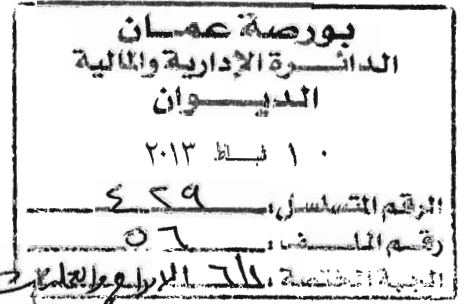 بورصة عمان
الدائرة الإدارية والمالية
الديوان
١٠ شباط ٢٠١٣
الرقم المتسلسل: ٤٢٩
رقم الملف: ٥٦
الجهة المختصة: الادراج